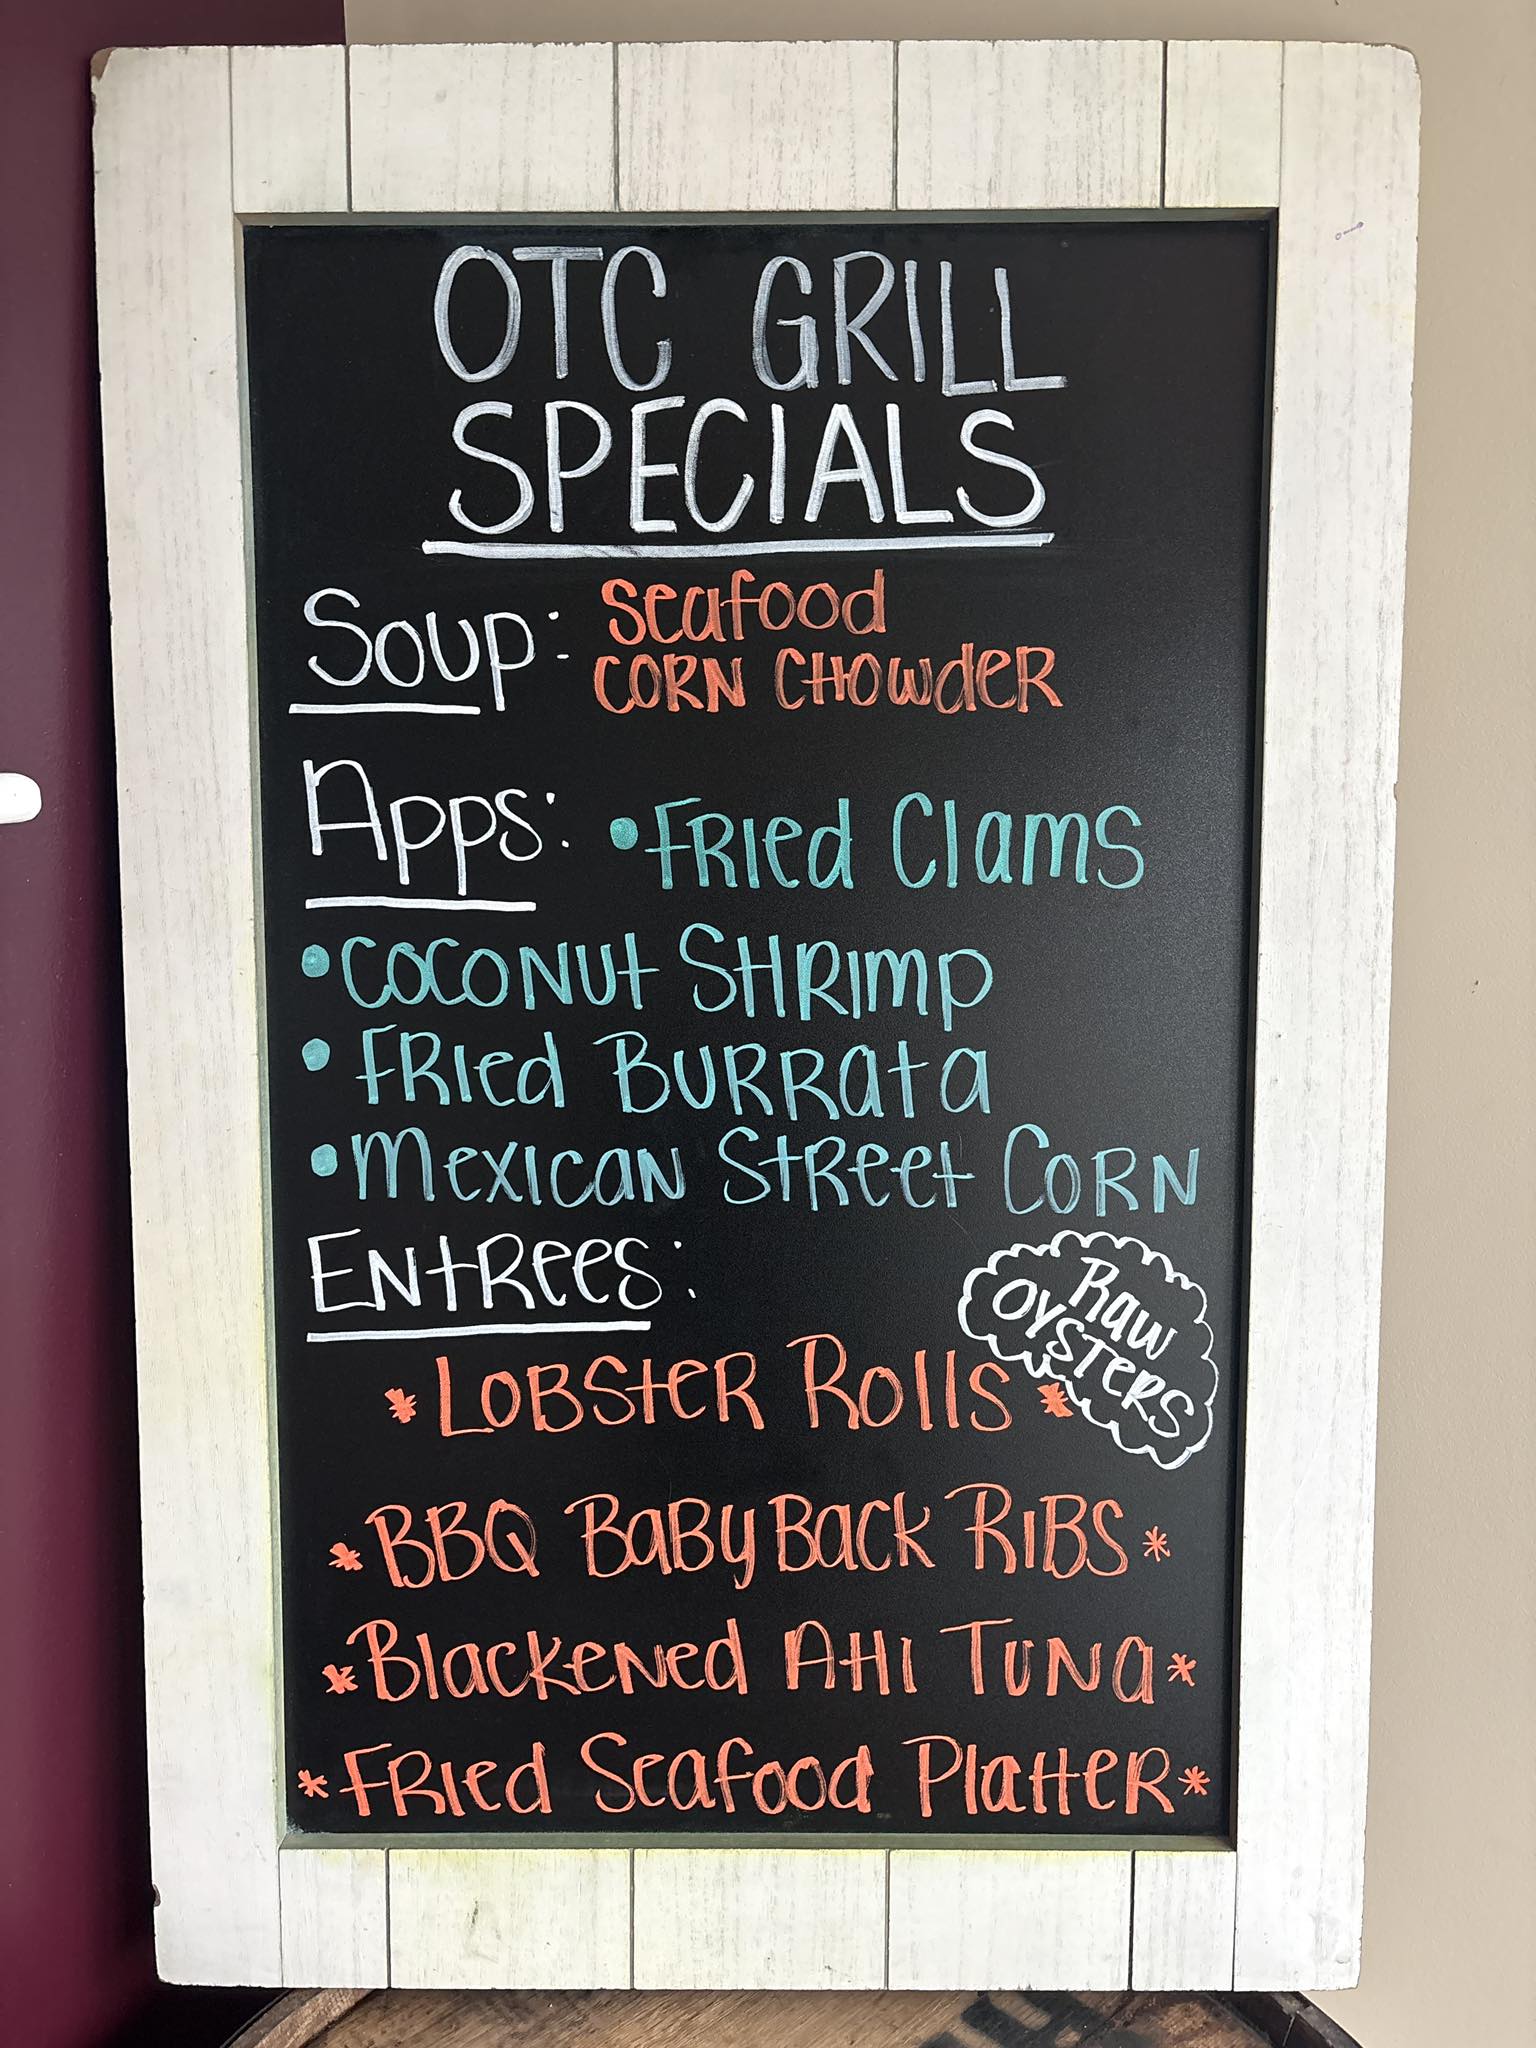 OTC GRILL
SPECIALS
Soup: Seafood
CORN CHOWDER
Apps: • Fried Clams
• Coconut Shrimp
• Fried Burrata
• Mexican Street Corn
Entrees:
Raw
Oysters
* Lobster Rolls *
* BBQ Baby Back Ribs *
* Blackened Ahi Tuna *
* Fried Seafood Platter *